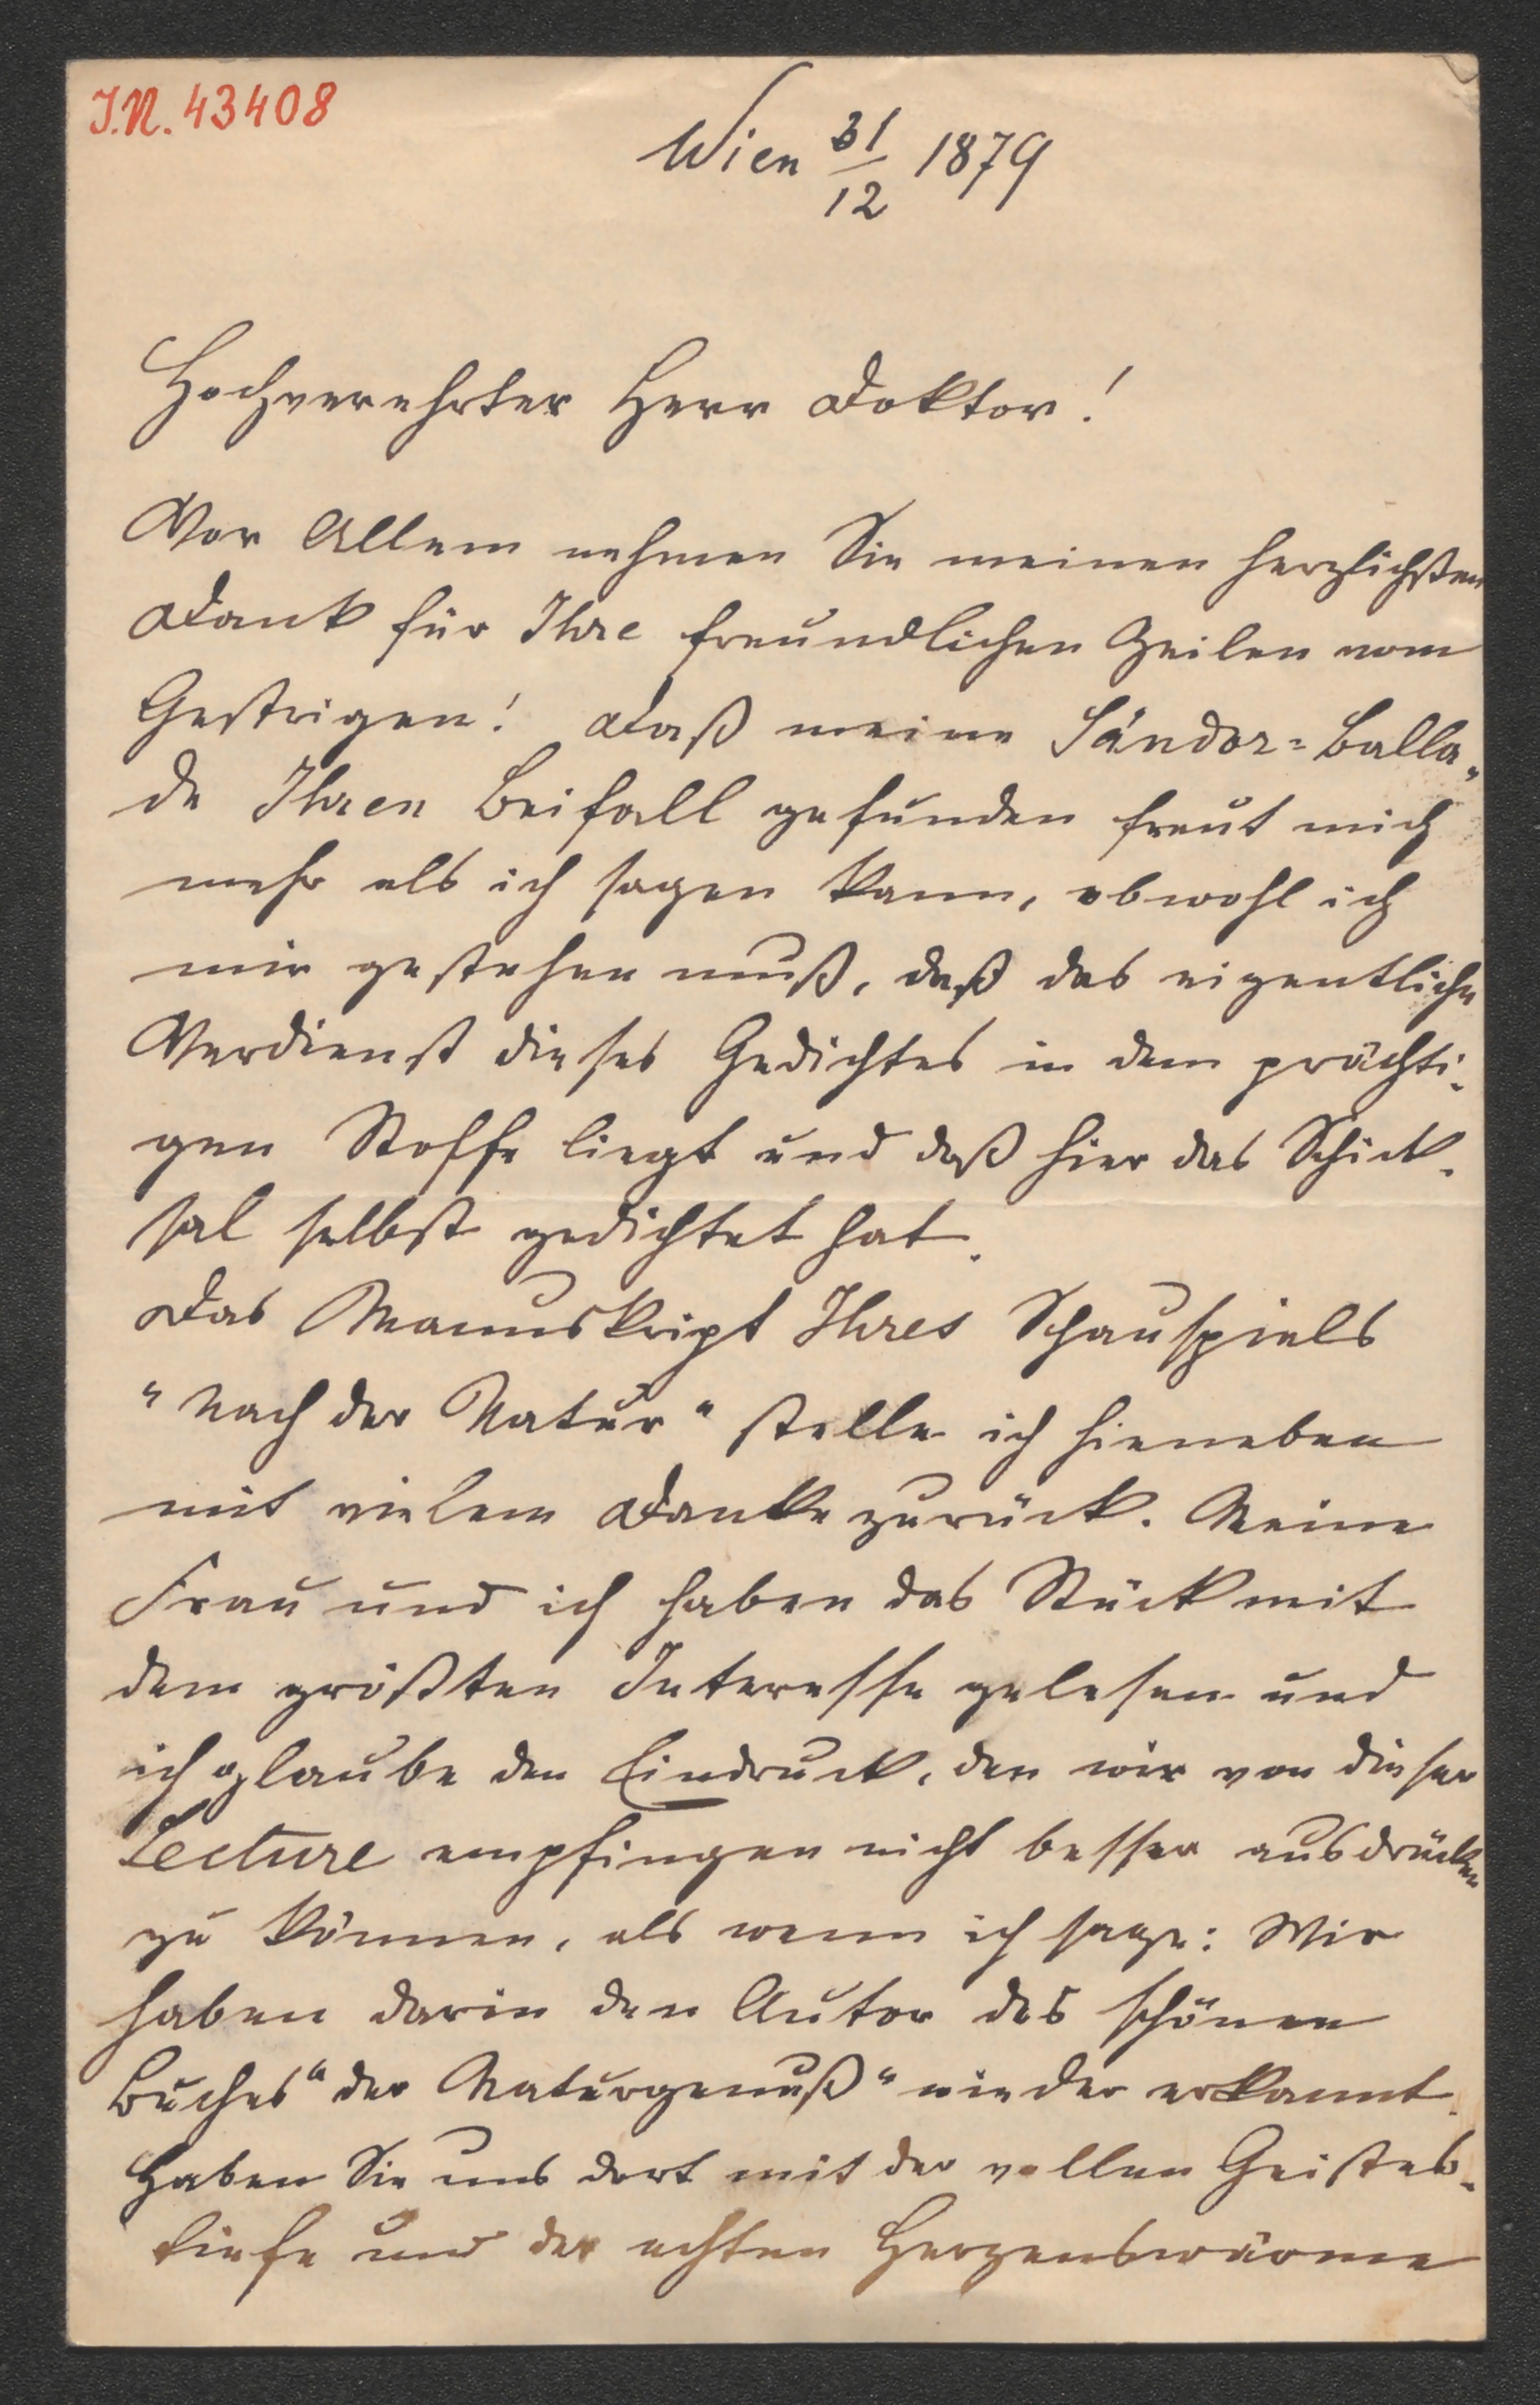 J.N. 43408
Wien 31/12 1879
Hochverehrter Herr Doktor!
Vor Allem nehmen Sie meinen herzlichsten
Dank für Ihre freundlichen Zeilen vom
Gestrigen! Daß meine Sándor=Balla„
de Ihren Beifall gefunden freut mich
mehr als ich sagen kann, obwohl ich
mir gestehen muß, daß das eigentliche
Verdienst dieses Gedichtes in dem prächti-
gen Stoffe liegt und daß hier das Schick-
sal selbst gedichtet hat.
Das Manuskript Ihres Schauspiels
"Nach der Natur" stelle ich hieneben
mit vielem Danke zurück. Meine
Frau und ich haben das Stück mit
dem größten Interesse gelesen und
ich glaube den Eindruck, den wir von dieser
Lecture empfingen nicht besser ausdrücken
zu können, als wenn ich sage: Wir
haben darin den Autor des schönen
Buches "der Naturgenuß" wieder erkannt.
Haben Sie uns dort mit der vollen Geistes-
tiefe und der echten Herzenswärme